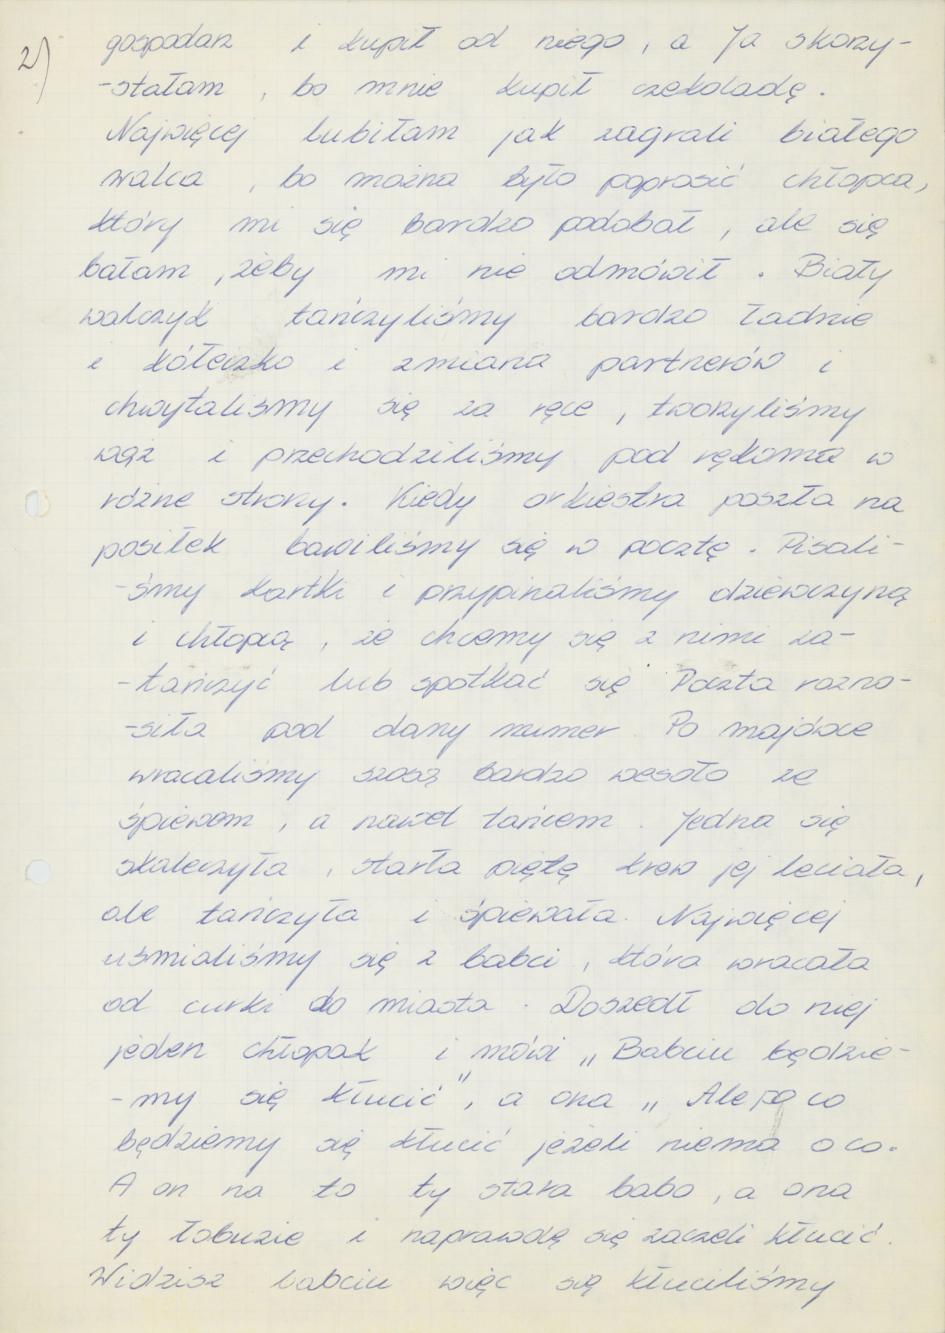 2)
gospodarz i kupił od niego, a Ja skorzy-
-stałam, bo mnie kupił czekoladę.
Najwięcej lubiłam jak zagrali białego
walca, bo można było poprosić chłopca,
który mi się bardzo podobał, ale się
bałam, żeby mi nie odmówił. Biały
walczyk tańczyliśmy bardzo ładnie
i kółeczko i zmiana partnerów i
chwytaliśmy się za ręce, tworzyliśmy
wąż i przechodziliśmy pod rękoma w
różne strony. Kiedy orkiestra poszła na
posiłek bawiliśmy się w pocztę. Pisali-
-śmy kartki i przypinaliśmy dziewczyną
i chłopcą, że chcemy się z nimi za-
-tańczyć lub spotkać się Poczta rozno-
-siła pod dany numer. Po majówce
wracaliśmy szosą bardzo wesoło ze
śpiewem, a nawet tańcem. Jedna się
skaleczyła, starła piętę krew jej leciała,
ale tańczyła i śpiewała. Najwięcej
uśmialiśmy się z babci, która wracała
od curki do miasta. Doszedł do niej
jeden chłopak i mówi „Babciu będzie-
-my się kłucić", a ona „Ale po co
będziemy się kłucić jeżeli niema o co.
A on na to ty stara babo, a ona
ty łobuzie i naprawdę się zaczeli kłucić.
Widzisz babciu więc się kłuciliśmy